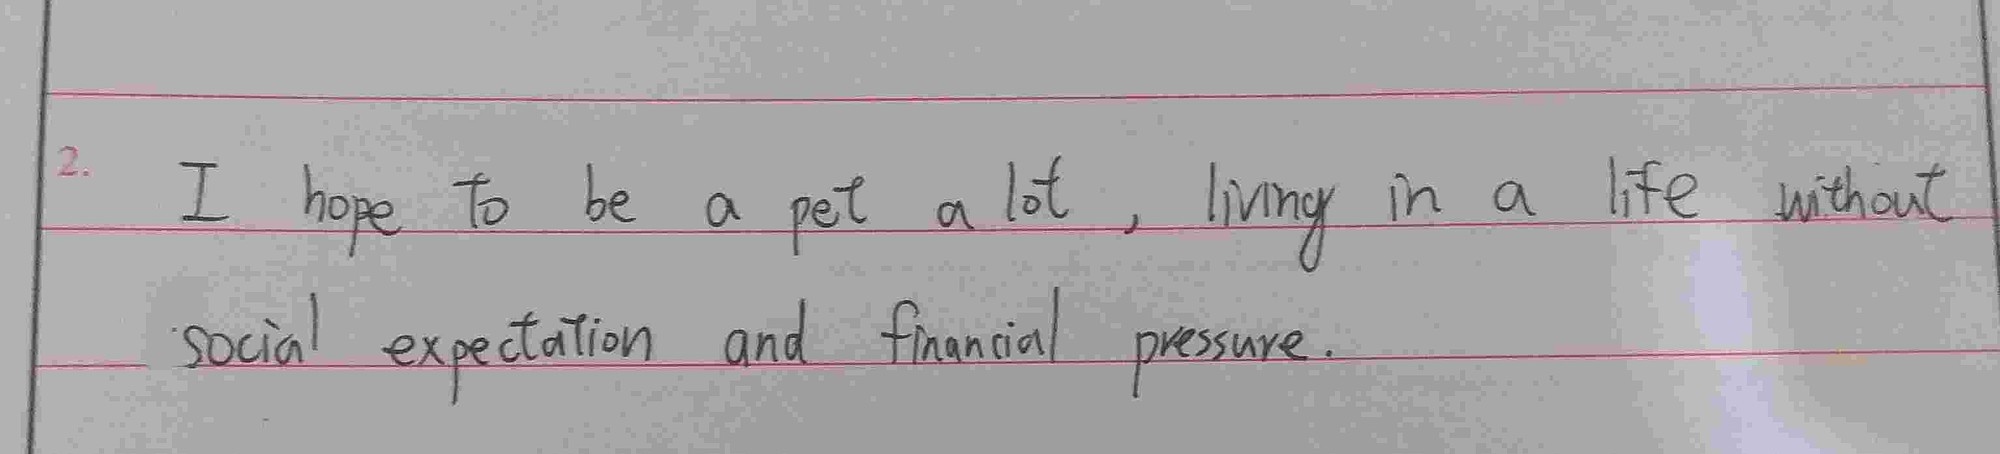 2. I hope to be a pet a lot, living in a life without
social expectation and financial pressure.